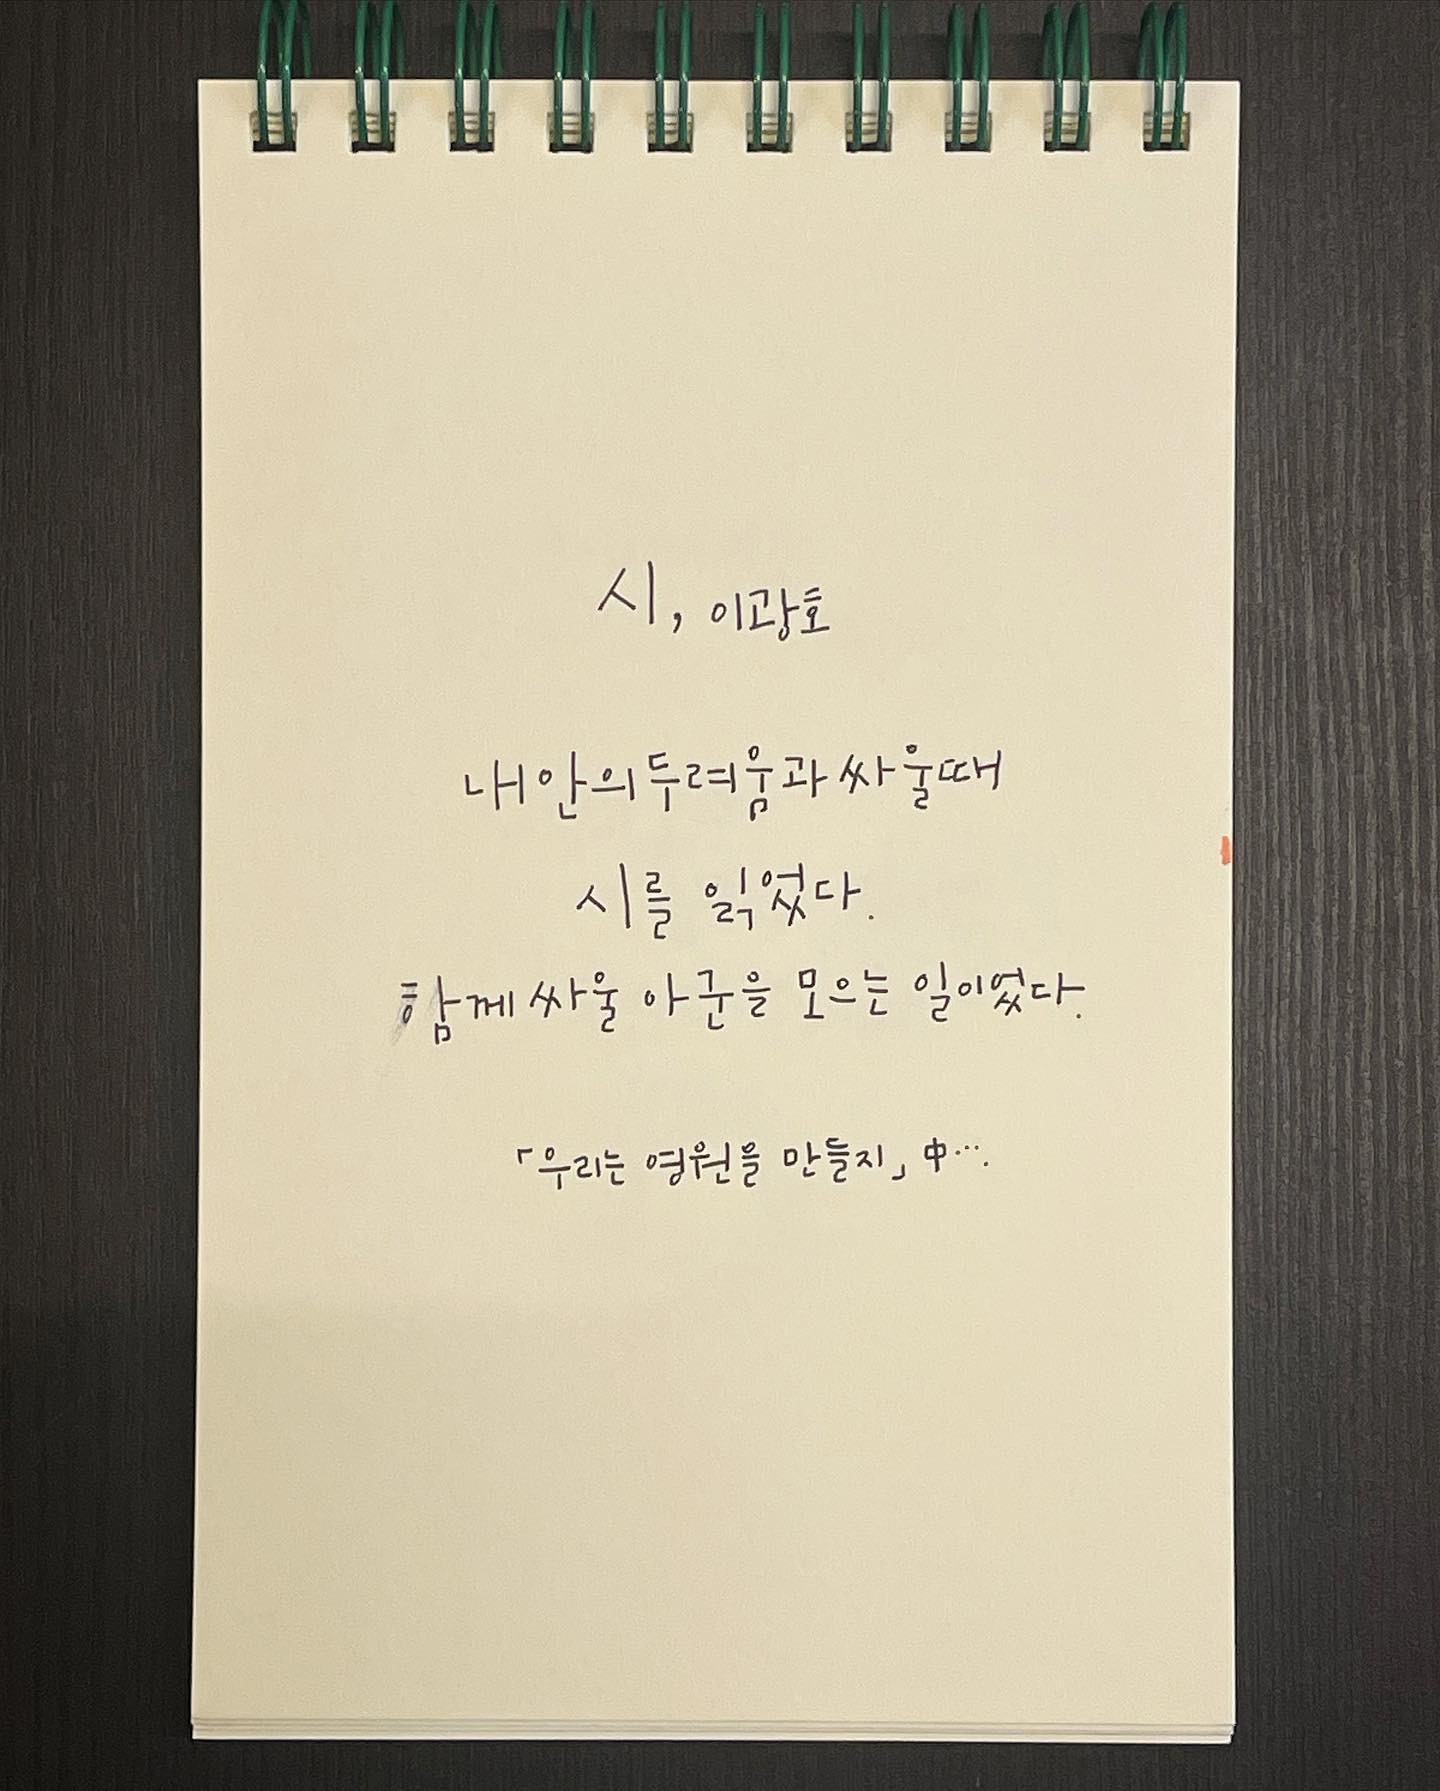 시, 이광호
내 안의 두려움과 싸울 때
시를 읽었다.
함께 싸울 아군을 모으는 일이었다.
「우리는 영원을 만들지」 中….